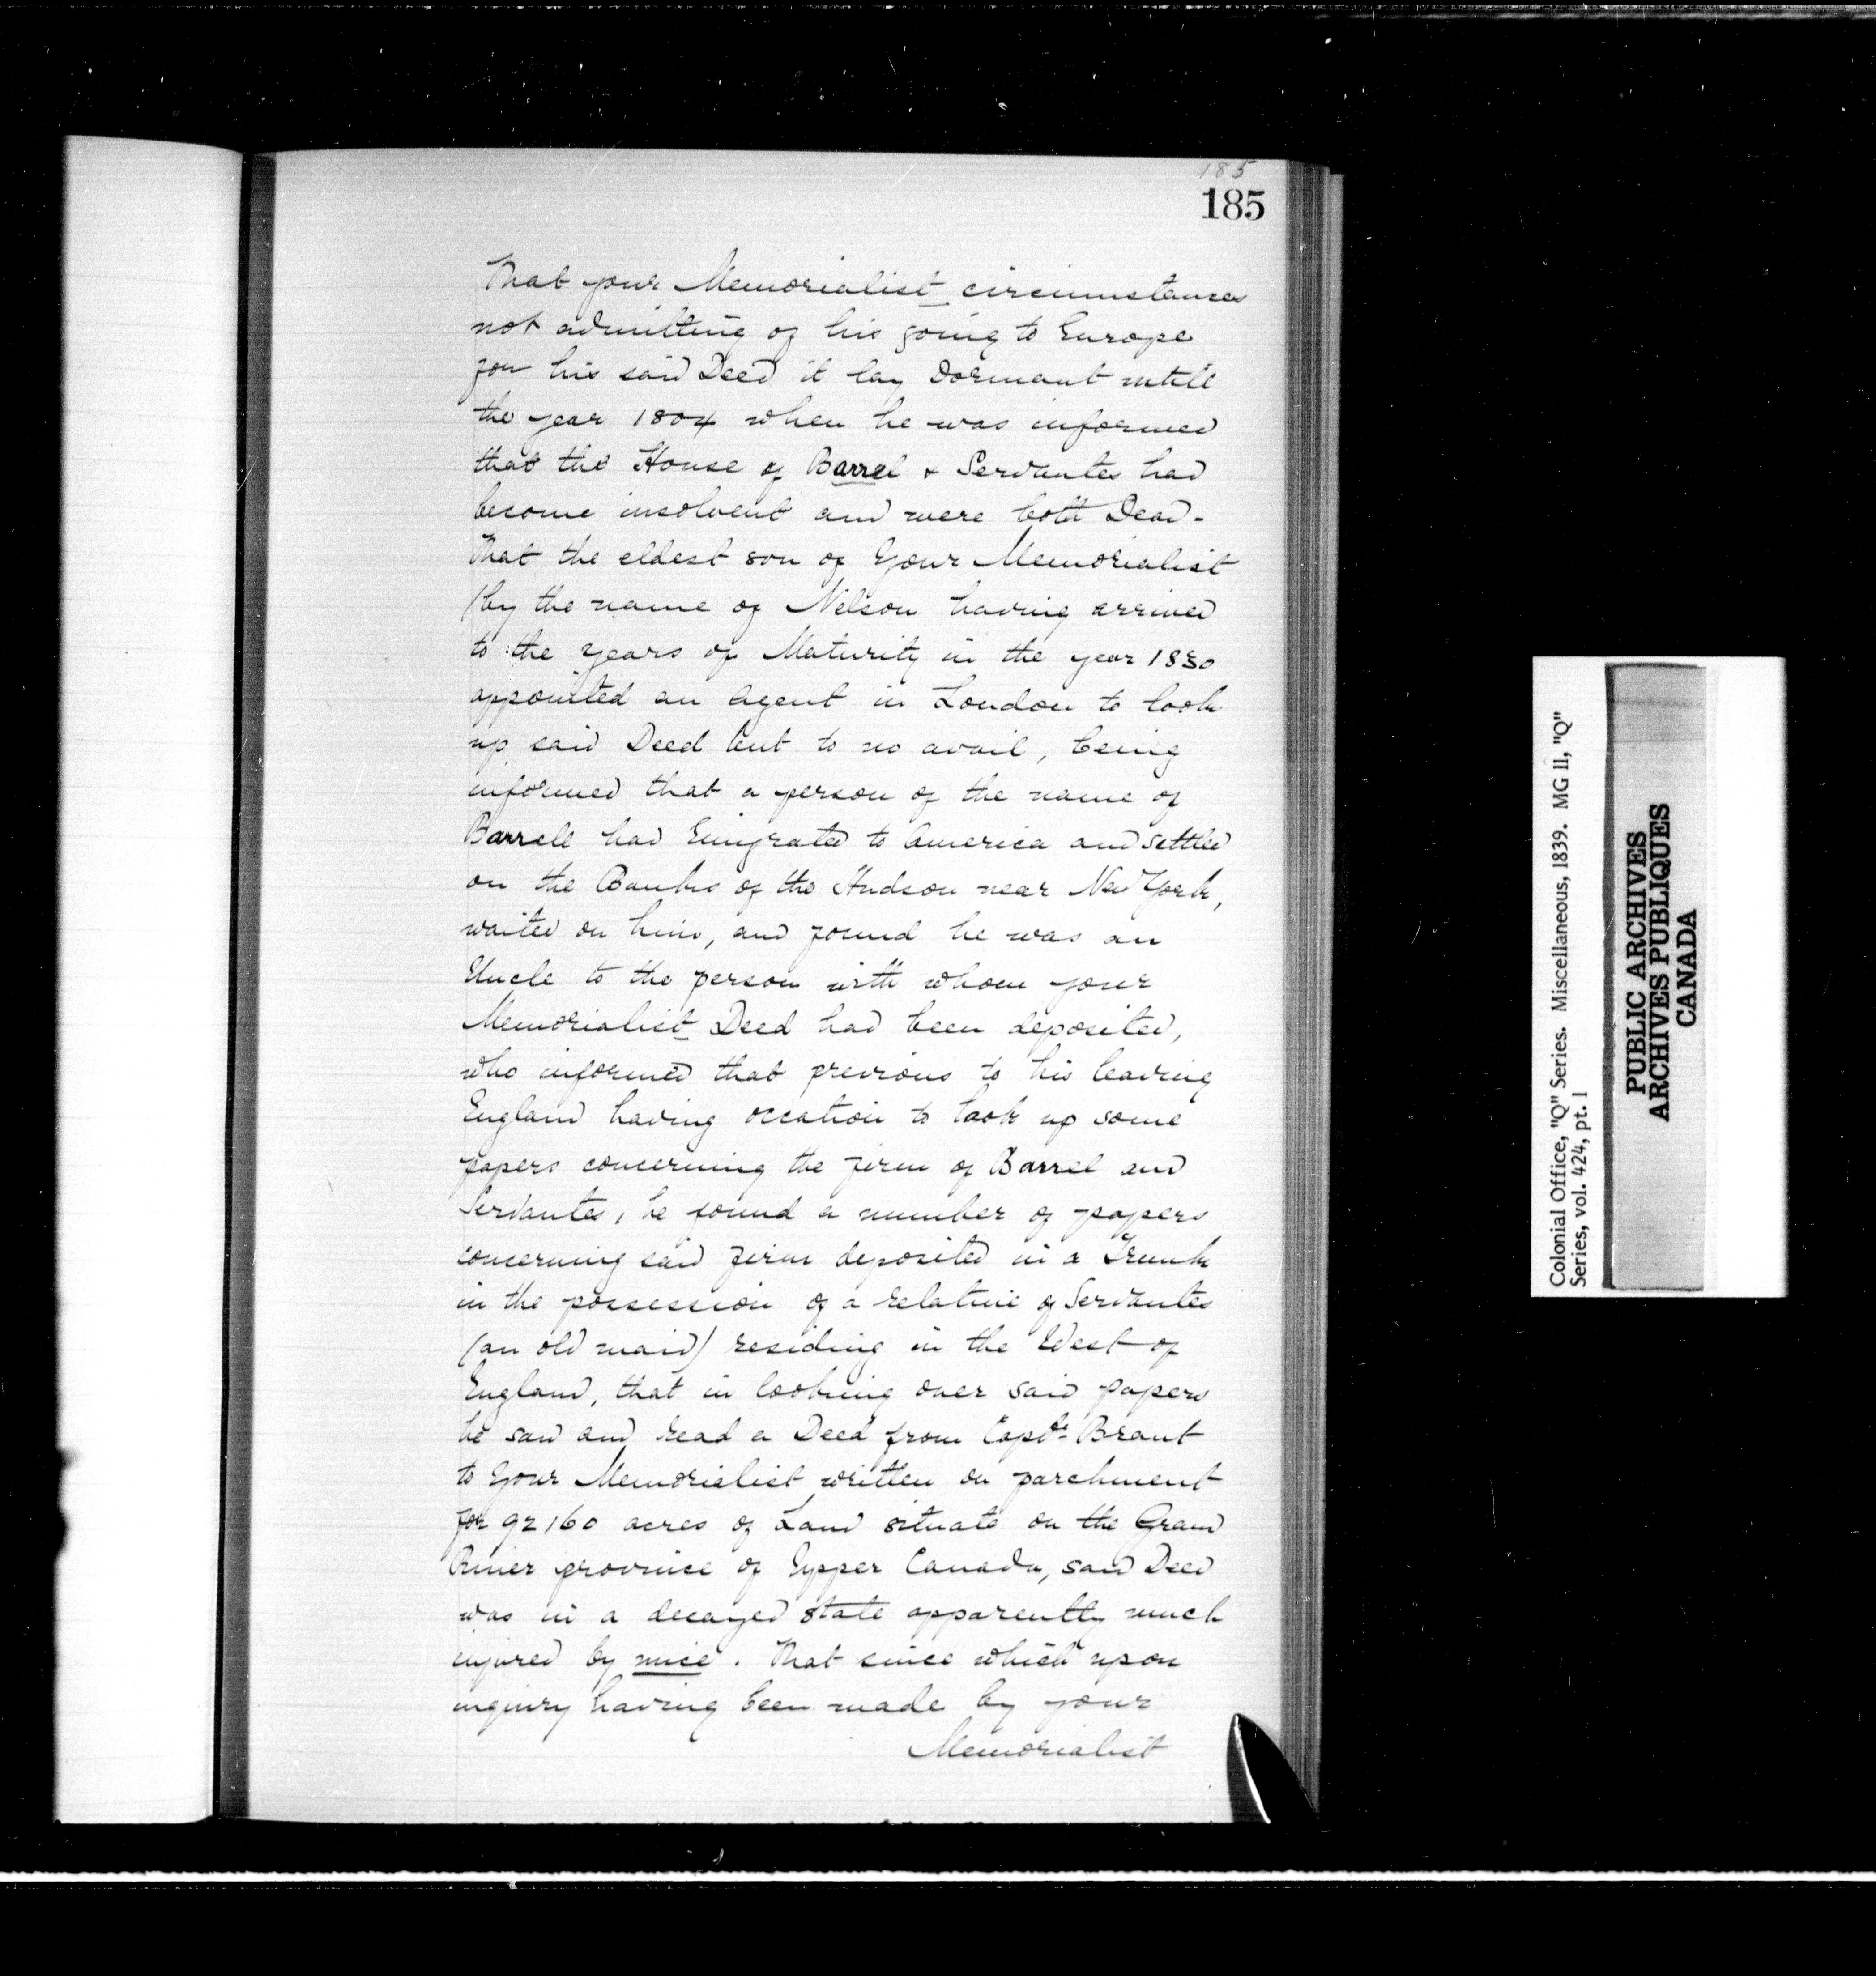 185
185
That your Memorialist circumstances
not admitting of his going to Europe
for his said Deed it lay Dormant untill
the year 1804 when he was informed
that the House of Barrel & Servantes had
become insolvent and were both Dead -
That the eldest son of Your Memorialist
(by the name of Nelson having arrived
to the years of Maturity in the year 1830
appointed an agent in London to look
up said Deed but to no avail, being
informed that a person of the name of
Barrell had Emigrated to America and settled
on the Banks of the Hudson near New York,
waited on him, and found he was an
Uncle to the person with whom your
Memorialist Deed had been deposited,
who informed that previous to his leaving
England having occation to look up some
papers concerning the firm of Barrel and
Servantes, he found a number of papers
concerning said firm deposited in a Trunk
in the possession of a relative of Servantes
(an old maid) residing in the West of
England, that in looking over said papers
he saw and read a Deed from Capt. Brant
to Your Memorialist written on parchment
for 92160 acres of Land situate on the Grand
River province of Upper Canada, said Deed
was in a decayed state apparently much
injured by mice. That since which upon
inquiry having been made by your
Memorialist
Colonial Office, "Q" Series. Miscellaneous, 1839. MG 11, "Q"
Series, vol. 424, pt. 1
PUBLIC ARCHIVES
ARCHIVES PUBLIQUES
CANADA